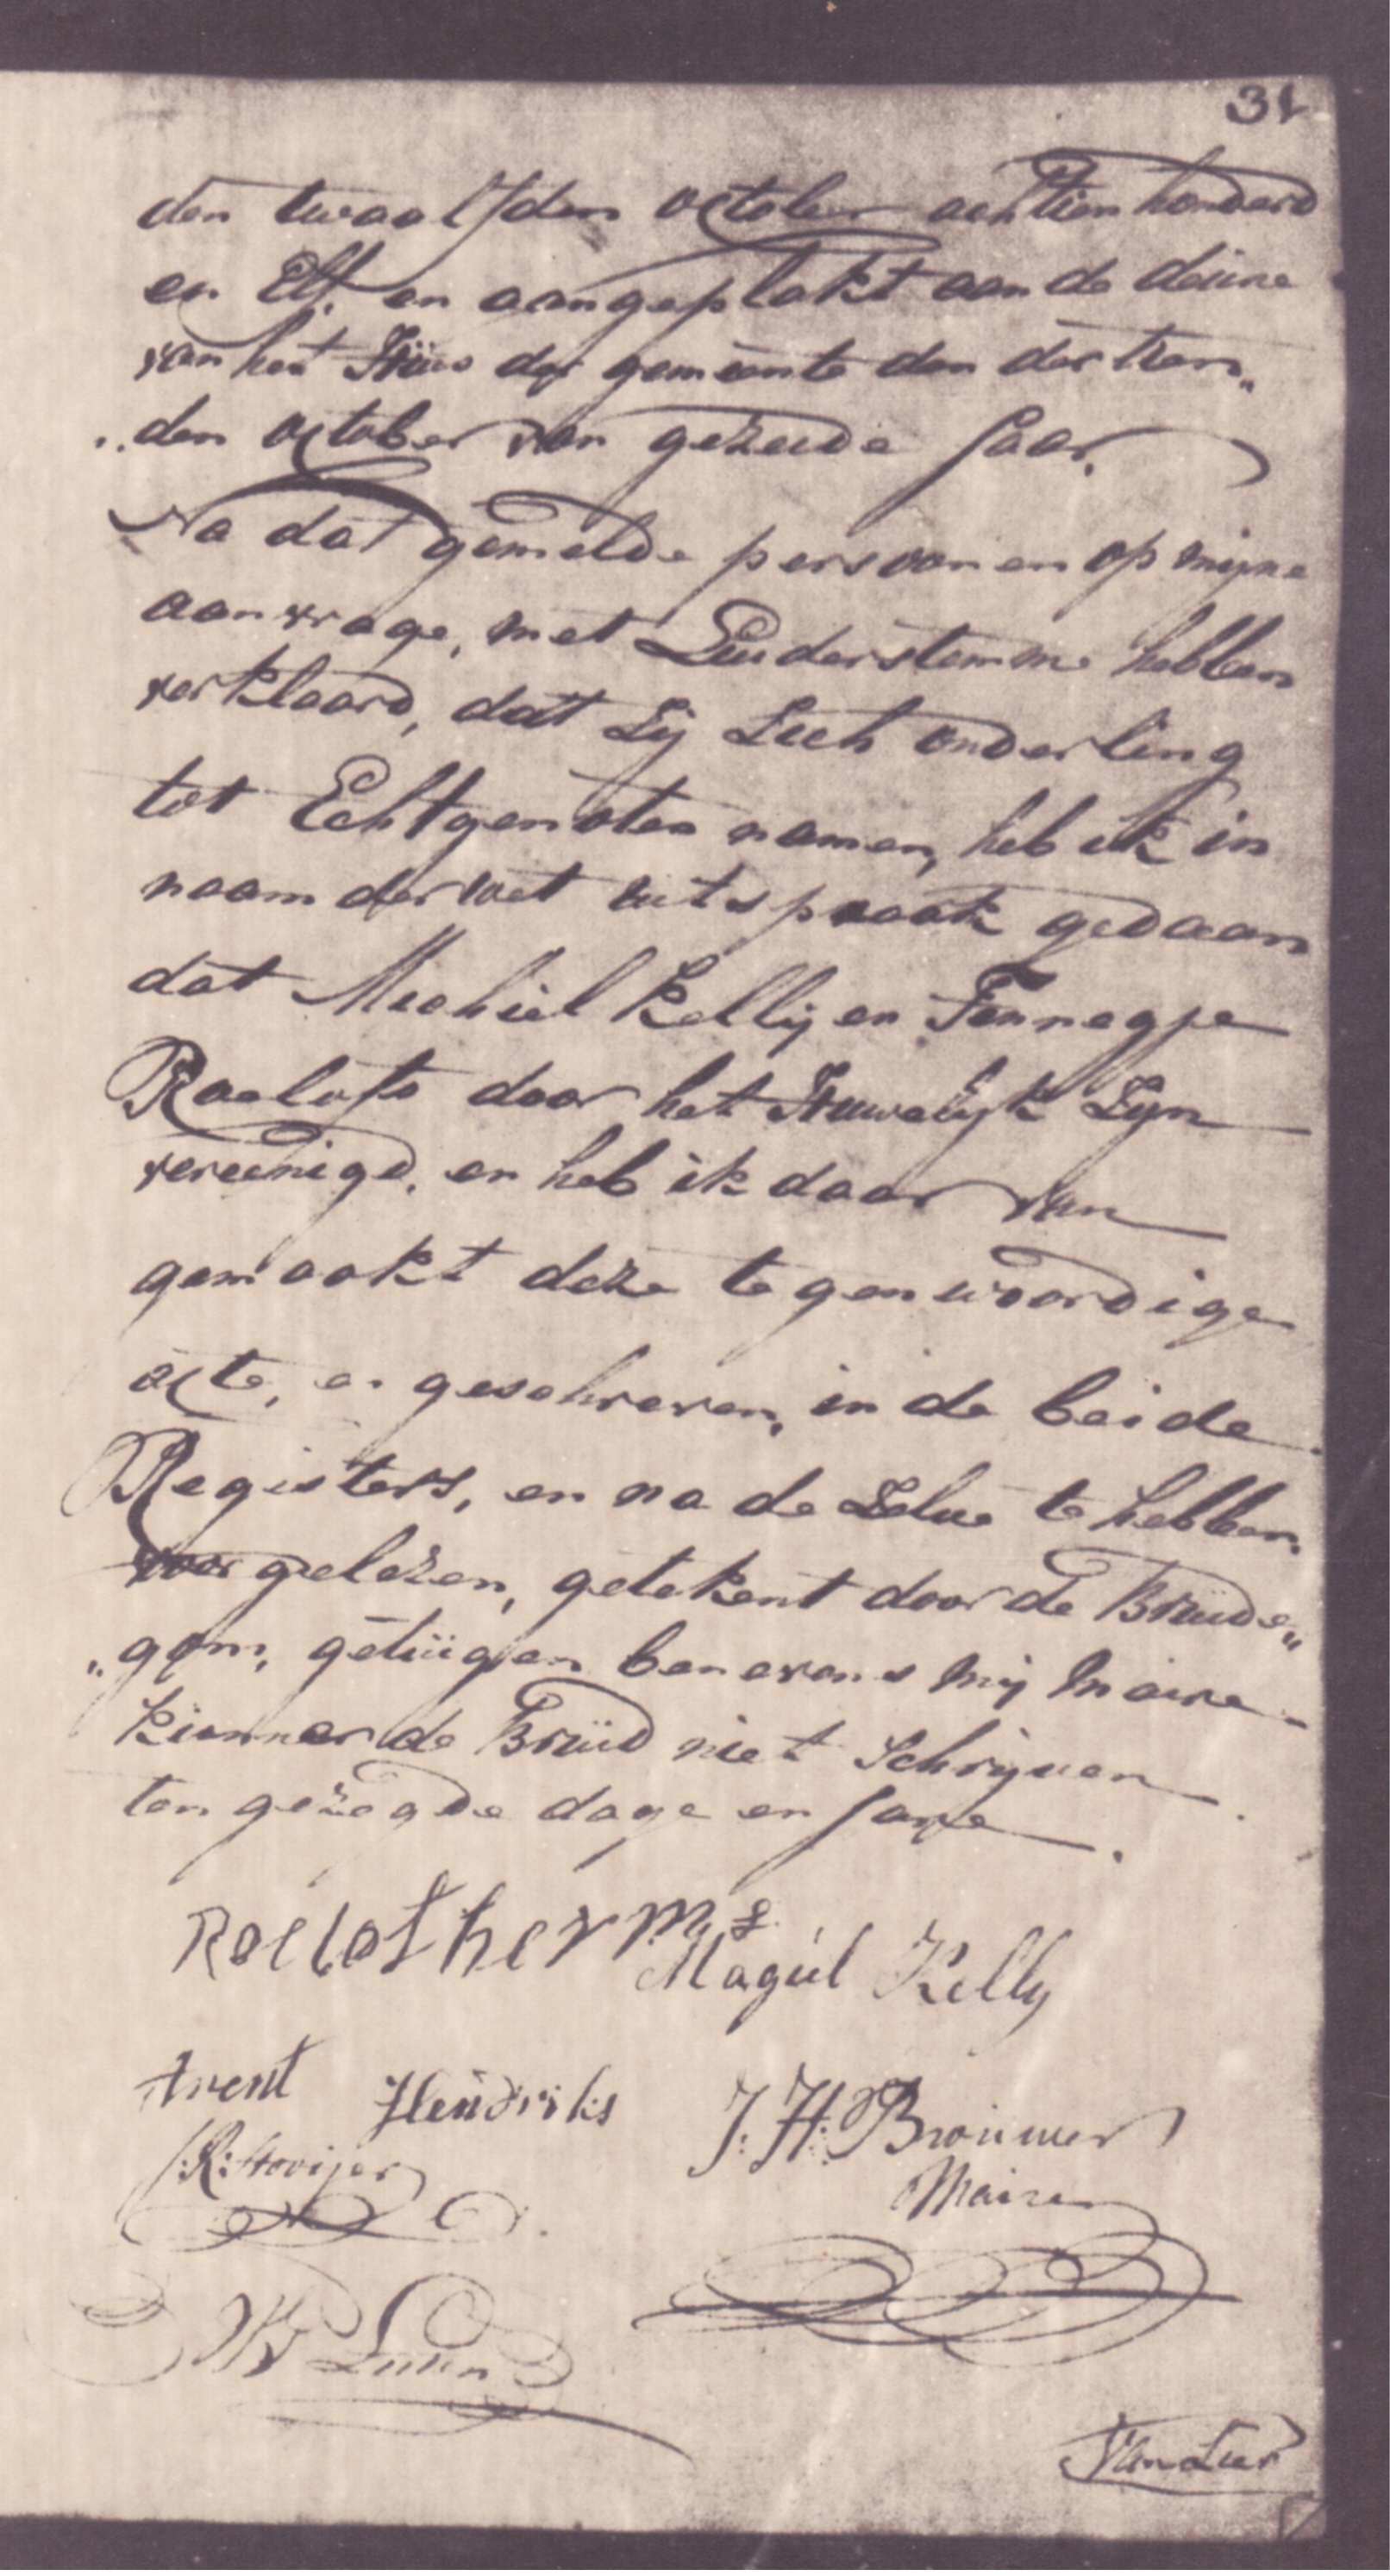 31
den twaalfden october achtien honderd
en Elf. en aangeplakt aan de deüre
van het Hüis der gemeente den dertien„
„den october van gezeide Jaar.
Na dat gemelde persoonen op mijne
aanvrage, met Luider stemme hebben
verklaard, dat Zij Zich onderling
tot Echtgenoten namen, heb ik in
naam der wet uitspraak gedaan
dat Michiel Kellij en Fennegje
Roelofs door het Huwelijk Zijn
vereenigd, en heb ik daar van
gemaakt deze tegenwoordige
acte, en geschreven, in de beide
Registers, en na de Zelve te hebben
voorgelezen, getekent door de Brüide„
„gom, getüigen benevens mij Maire
künnende de Brüid niet Schrijven
ten gezegde dage en Jare.
Roelof herms
Magiel Kelly
Arent Hendriks
J: H: Brouwer
Maire
W Luun
Van Lier